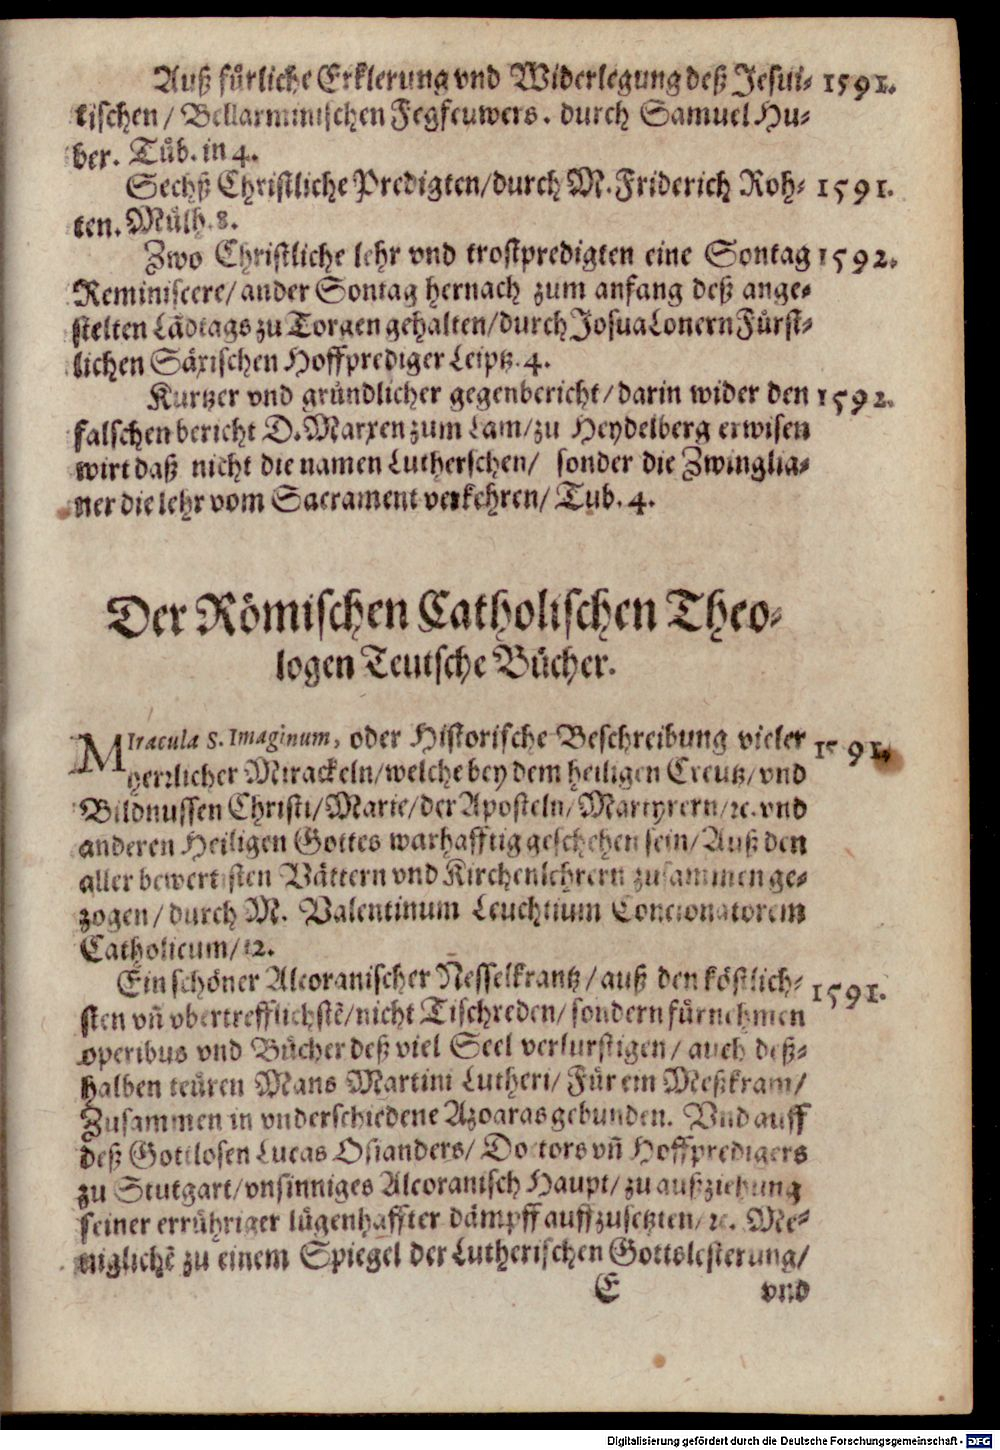 Auß fürliche Erklerung vnd Widerlegung deß Jesui- 1591.
tischen / Bellarminischen Fegfeuwers. durch Samuel Hu-
ber. Tüb. in 4.
Sechß Christliche Predigten/durch M. Friderich Roh- 1591.
ten. Mülh. 8.
Zwo Christliche lehr vnd trostpredigten eine Sontag 1592.
Reminiscere/ ander Sontag hernach zum anfang deß ange-
stelten Lādtags zu Torgen gehalten/durch Josua Lonern Fürst-
lichen Säxischen Hoffprediger Leiptz. 4.
Kurtzer vnd gründlicher gegenbericht/darin wider den 1592.
falschen bericht D. Marxen zum Lam/zu Heydelberg erwisen
wirt daß nicht die namen Lutherschen/ sonder die Zwinglia-
ner die lehr vom Sacrament verkehren/ Tub. 4.
Der Römischen Catholischen Theo-
logen Teutsche Bücher.
MIracula S. Imaginum, oder Historische Beschreibung vieler 1591.
herrlicher Mirackeln/welche bey dem heiligen Creutz/vnd
Bildnussen Christi/Marie/der Aposteln/Martyrern/ꝛc. vnd
anderen Heiligen Gottes warhafftig geschehen sein/Auß den
aller bewertisten Vättern vnd Kirchenlehrern zusammen ge-
zogen/durch M. Valentinum Leuchtium Concionatorem
Catholicum/12.
Ein schöner Alcoranischer Nesselkrantz/auß den köstlich- 1591.
sten vn̄ vbertrefflichstē/nicht Tischreden/sondern fürnehmen
operibus vnd Bücher deß viel Seel verlurstigen/ auch deß-
halben teüren Mans Martini Lutheri/ Für ein Meßkram/
Zusammen in vnderschiedene Azoaras gebunden. Vnd auff
deß Gottlosen Lucas Osianders/ Doctors vn̄ Hoffpredigers
zu Stutgart/vnsinniges Alcoranisch Haupt/zu außziehung
seiner errühriger lügenhaffter dämpff auffzusetzten/ꝛc. Me-
niglichē zu einem Spiegel der Lutherischen Gottslesterung/
E vnd
Digitalisierung gefördert durch die Deutsche Forschungsgemeinschaft - DFG